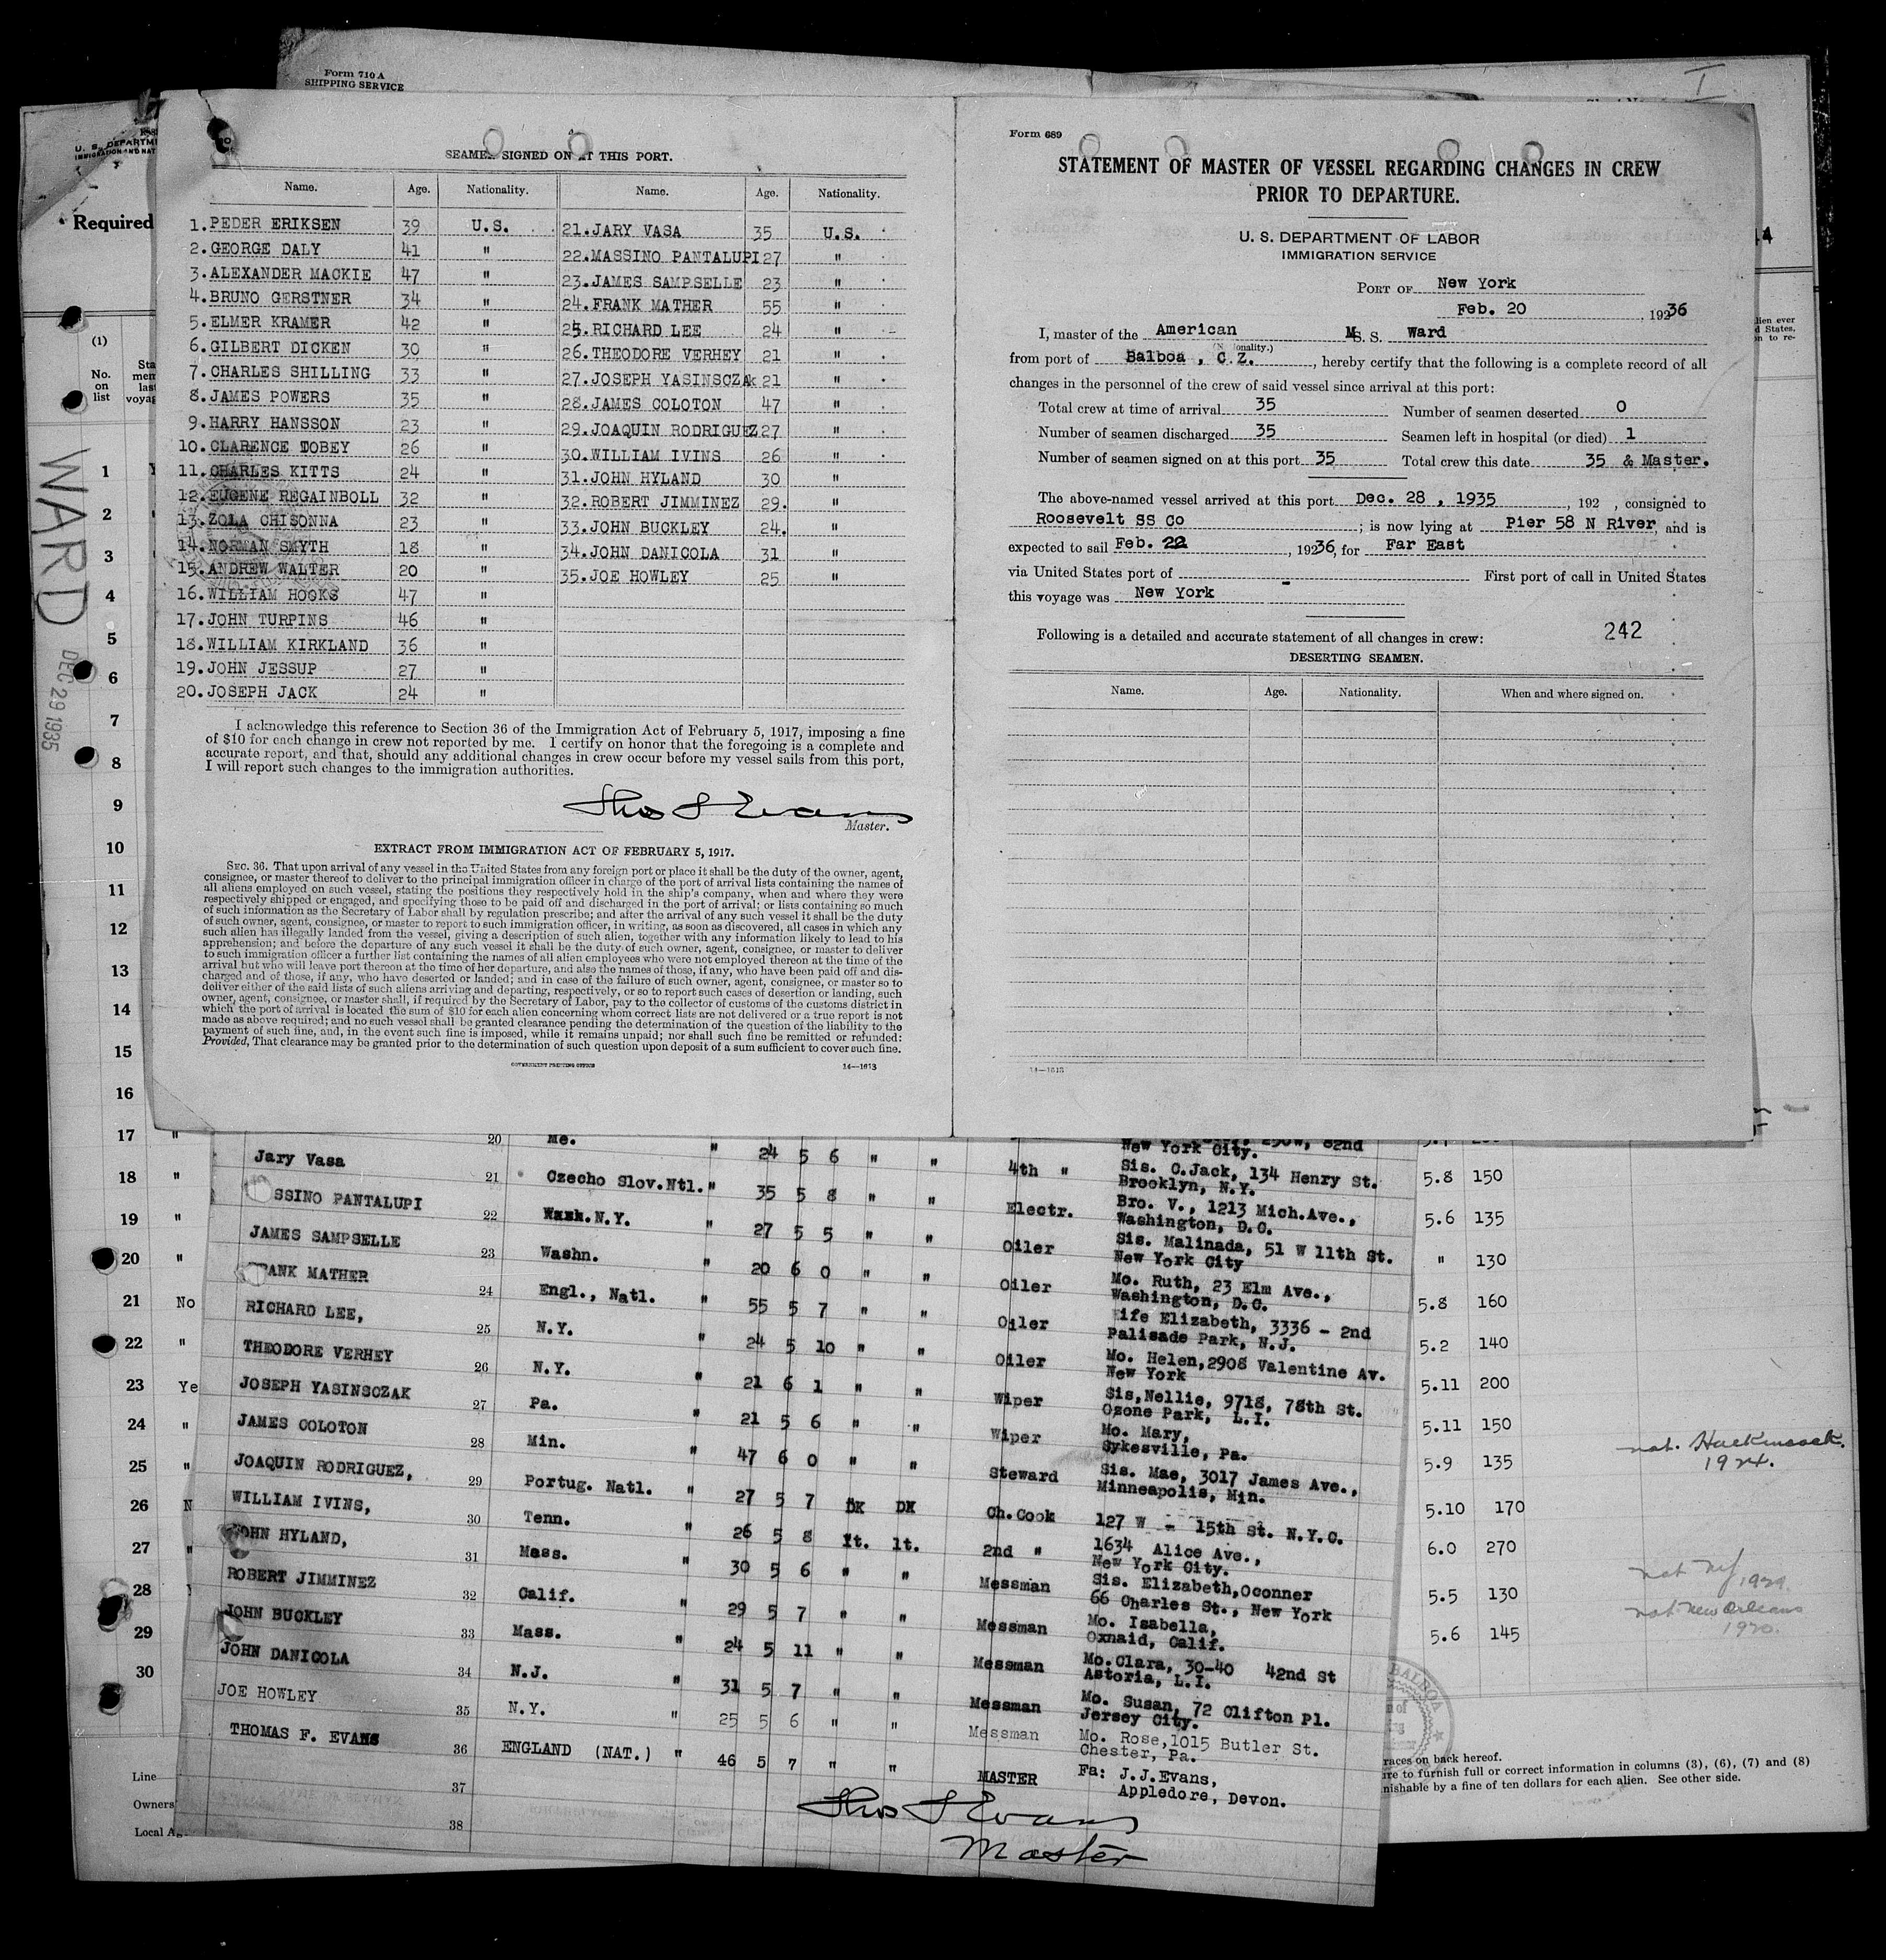 Form 710 A
SHIPPING SERVICE
I
U. S. DEPARTM
IMMIGRATION AND NAT
Required
44
(1)
No.
on
list
Sta
men
last
voyag
lien ever
d States,
on to re-
WARD
DEC 29 1935
SEAMEN SIGNED ON AT THIS PORT.
Name. Age. Nationality. Name. Age. Nationality.
1. PEDER ERIKSEN 39 U.S. 21. JARY VASA 35 U.S.
2. GEORGE DALY 41 " 22. MASSINO PANTALUPI 27 "
3. ALEXANDER MACKIE 47 " 23. JAMES SAMPSELLE 23 "
4. BRUNO GERSTNER 34 " 24. FRANK MATHER 55 "
5. ELMER KRAMER 42 " 25. RICHARD LEE 24 "
6. GILBERT DICKEN 30 " 26. THEODORE VERHEY 21 "
7. CHARLES SHILLING 33 " 27. JOSEPH YASINSCZAk 21 "
8. JAMES POWERS 35 " 28. JAMES COLOTON 47 "
9. HARRY HANSSON 23 " 29. JOAQUIN RODRIGUEZ 27 "
10. CLARENCE TOBEY 26 " 30. WILLIAM IVINS 26 "
11. CHARLES KITTS 24 " 31. JOHN HYLAND 30 "
12. EUGENE REGAINBOLL 32 " 32. ROBERT JIMMINEZ 29. "
13. ZOLA CHISONNA 23 " 33. JOHN BUCKLEY 24. "
14. NORMAN SMYTH 18 " 34. JOHN DANICOLA 31 "
15. ANDREW WALTER 20 " 35. JOE HOWLEY 25 "
16. WILLIAM HOOKS 47 "
17. JOHN TURPINS 46 "
18. WILLIAM KIRKLAND 36 "
19. JOHN JESSUP 27 "
20. JOSEPH JACK 24 "
I acknowledge this reference to Section 36 of the Immigration Act of February 5, 1917, imposing a fine
of $10 for each change in crew not reported by me. I certify on honor that the foregoing is a complete and
accurate report, and that, should any additional changes in crew occur before my vessel sails from this port,
I will report such changes to the immigration authorities.
Thos F Evans
Master.
EXTRACT FROM IMMIGRATION ACT OF FEBRUARY 5, 1917.
SEC. 36. That upon arrival of any vessel in the United States from any foreign port or place it shall be the duty of the owner, agent,
consignee, or master thereof to deliver to the principal immigration officer in charge of the port of arrival lists containing the names of
all aliens employed on such vessel, stating the positions they respectively hold in the ship's company, when and where they were
respectively shipped or engaged, and specifying those to be paid off and discharged in the port of arrival; or lists containing so much
of such information as the Secretary of Labor shall by regulation prescribe; and after the arrival of any such vessel it shall be the duty
of such owner, agent, consignee, or master to report to such immigration officer, in writing, as soon as discovered, all cases in which any
such alien has illegally landed from the vessel, giving a description of such alien, together with any information likely to lead to his
apprehension; and before the departure of any such vessel it shall be the duty of such owner, agent, consignee, or master to deliver
to such immigration officer a further list containing the names of all alien employees who were not employed thereon at the time of the
arrival but who will leave port thereon at the time of her departure, and also the names of those, if any, who have been paid off and dis-
charged and of those, if any, who have deserted or landed; and in case of the failure of such owner, agent, consignee, or master so to
deliver either of the said lists of such aliens arriving and departing, respectively, or so to report such cases of desertion or landing, such
owner, agent, consignee, or master shall, if required by the Secretary of Labor, pay to the collector of customs of the customs district in
which the port of arrival is located the sum of $10 for each alien concerning whom correct lists are not delivered or a true report is not
made as above required; and no such vessel shall be granted clearance pending the determination of the question of the liability to the
payment of such fine, and, in the event such fine is imposed, while it remains unpaid; nor shall such fine be remitted or refunded:
Provided, That clearance may be granted prior to the determination of such question upon deposit of a sum sufficient to cover such fine.
GOVERNMENT PRINTING OFFICE 14—1613
Form 689
STATEMENT OF MASTER OF VESSEL REGARDING CHANGES IN CREW
PRIOR TO DEPARTURE.
U. S. DEPARTMENT OF LABOR
IMMIGRATION SERVICE
PORT OF New York
Feb. 20, 19236
I, master of the American MS. S. Ward
onality.)
from port of Balboa, C.Z., hereby certify that the following is a complete record of all
changes in the personnel of the crew of said vessel since arrival at this port:
Total crew at time of arrival 35 Number of seamen deserted 0
Number of seamen discharged 35 Seamen left in hospital (or died) 1
Number of seamen signed on at this port 35 Total crew this date 35 & Master.
The above-named vessel arrived at this port Dec. 28, 1935, 192 , consigned to
Roosevelt SS Co ; is now lying at Pier 58 N River, and is
expected to sail Feb. 22, 19236, for Far East
via United States port of - First port of call in United States
this voyage was New York
Following is a detailed and accurate statement of all changes in crew: 242
DESERTING SEAMEN.
Name. Age. Nationality. When and where signed on.
14—1613
1
2
3
4
5
6
7
8
9
10
11
12
13
14
15
16
17 "
18 "
19 "
20 "
21 No
22 "
23 Ye
24 "
25 "
26 N
27 "
28
29
30
20 Me. " 24 5 6 " " 4th "
New York City.
Jary Vasa 21 Czecho Slov.Ntl. " 35 5 8 " " Electr.
Sis. C.Jack, 134 Henry St.
Brooklyn, N.Y.
SSINO PANTALUPI 22 N.Y. " 27 5 5 " " Oiler
Bro. V., 1213 Mich.Ave.,
Washington, D.C.
JAMES SAMPSELLE 23 Washn. " 20 6 0 " " Oiler
Sis. Malinada, 51 W 11th St.
New York City
RANK MATHER 24 Engl., Natl. " 55 5 7 " " Oiler
Mo. Ruth, 23 Elm Ave.,
Washington, D.C.
RICHARD LEE, 25 N.Y. " 24 5 10 " " Oiler
Wife Elizabeth, 3336 - 2nd
Palisade Park, N.J.
THEODORE VERHEY 26 N.Y. " 21 6 1 " " Wiper
Mo. Helen, 2908 Valentine Av.
New York
JOSEPH YASINSCZAK 27 Pa. " 21 5 6 " " Wiper
Sis, Nellie, 9718, 78th St.
Ozone Park, L.I.
JAMES COLOTON 28 Min. " 47 6 0 " " Steward
Mo. Mary,
Sykesville, Pa.
JOAQUIN RODRIGUEZ, 29 Portug. Natl. " 27 5 7 DK DK Ch.Cook
Sis. Mae, 3017 James Ave.,
Minneapolis, Min.
WILLIAM IVINS, 30 Tenn. " 26 5 8 lt. lt. 2nd "
127 W - 15th St. N.Y.C.
JOHN HYLAND, 31 Mass. " 30 5 6 " " Messman
1634 Alice Ave.,
New York City.
ROBERT JIMMINEZ 32 Calif. " 29 5 7 " " Messman
Sis. Elizabeth, Oconner
66 Charles St., New York
JOHN BUCKLEY 33 Mass. " 24 5 11 " " Messman
Mo. Isabella,
Oxnaid, Calif.
JOHN DANICOLA 34 N.J. " 31 5 7 " " Messman
Mo. Clara, 30-40 42nd St
Astoria, L.I.
JOE HOWLEY 35 N.Y. " 25 5 6 " " Messman
Mo. Susan, 72 Clifton Pl.
Jersey City.
THOMAS F. EVANS 36 ENGLAND (NAT.) " 46 5 7 " " MASTER
Mo. Rose, 1015 Butler St.
Chester, Pa.
Fa: J.J.Evans,
Appledore, Devon.
37
38
Thos F Evans
Master
5.8 150
5.6 135
" 130
5.8 160
5.2 140
5.11 200
5.11 150
5.9 135
5.10 170
6.0 270
5.5 130
5.6 145
nat. Hackensack.
1924.
nat 1929.
nat New Orleans
1920.
BALBOA
Line
Owners
Local A
races on back hereof.
ure to furnish full or correct information in columns (3), (6), (7) and (8)
nishable by a fine of ten dollars for each alien. See other side.